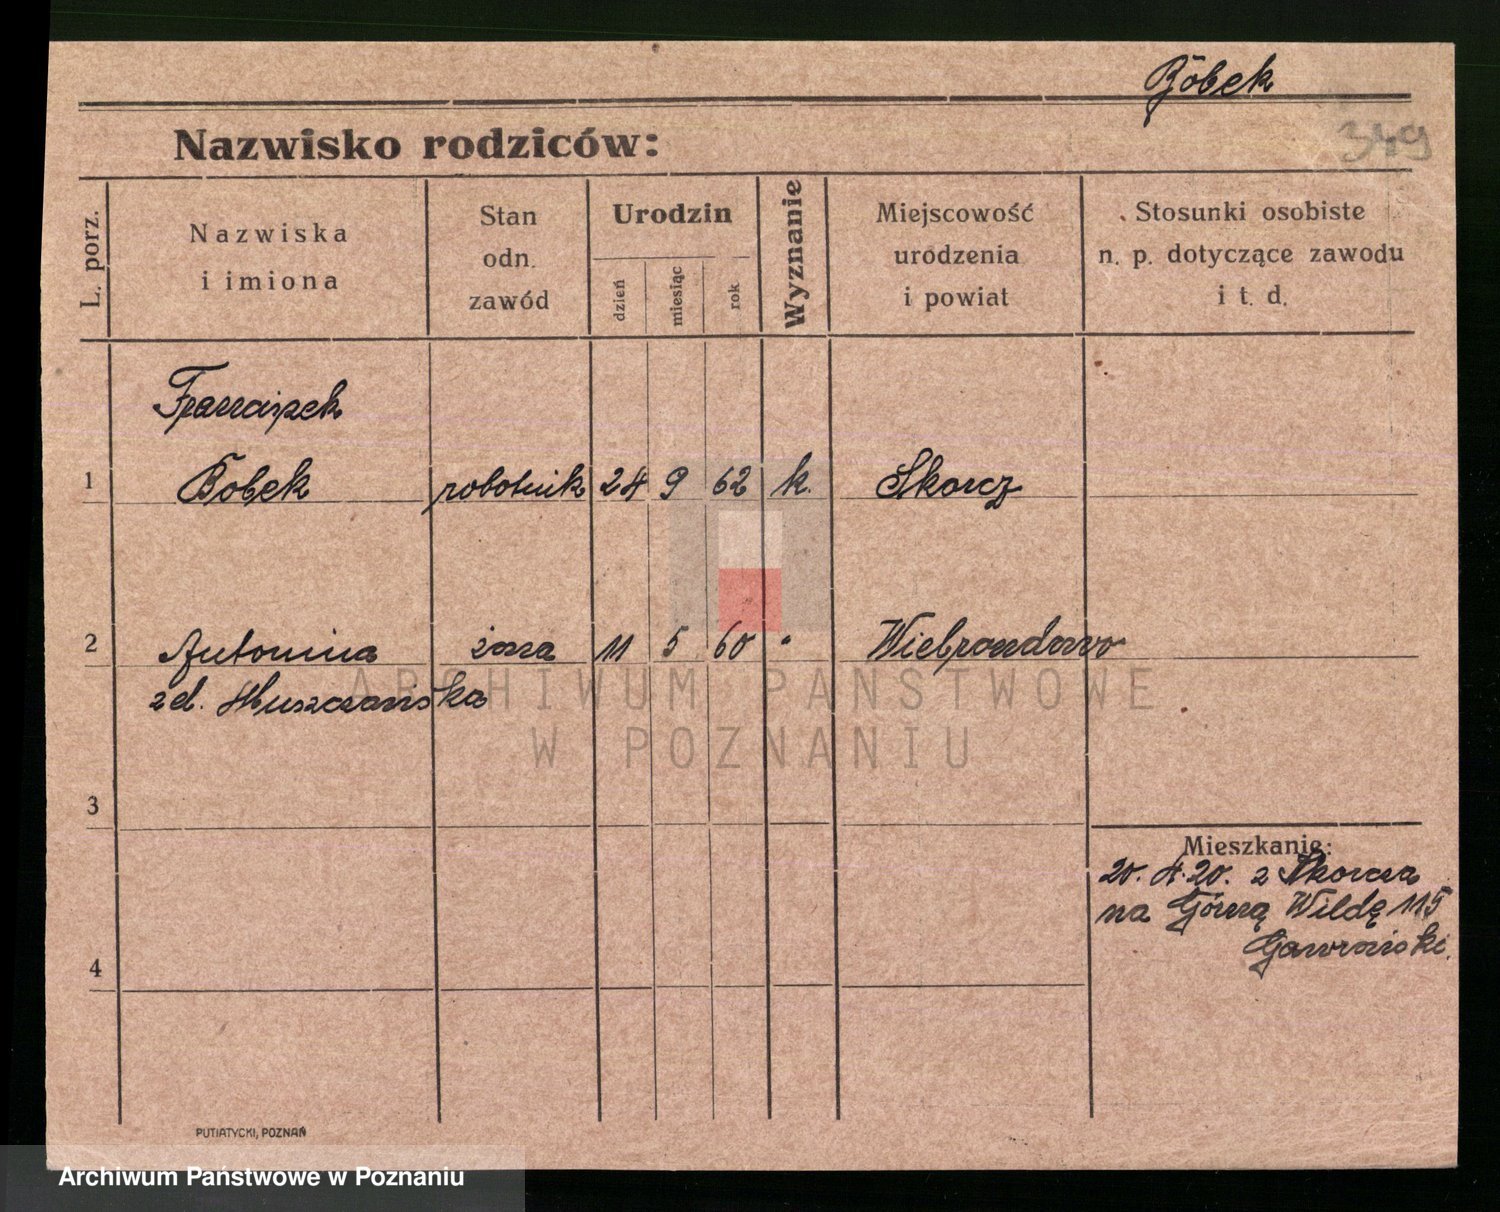 Böbek
349
Nazwisko rodziców:
L. porz.
Nazwiska
i imiona
Stan
odn.
zawód
Urodzin
dzień
miesiąc
rok
Wyznanie
Miejscowość
urodzenia
i powiat
Stosunki osobiste
n. p. dotyczące zawodu
i t. d.
Franciszek
1 Bobek robotnik 24 9 62 k. Skorcz
2 Antonina żona 11 5 60 " Wielbrandowo
zd.
3
Mieszkanie:
20. 4. 20. z Skorcza
na Górną Wildę 115
Gawroński.
4
ARCHIWUM PAŃSTWOWE
W POZNANIU
PUTIATYCKI, POZNAŃ
Archiwum Państwowe w Poznaniu